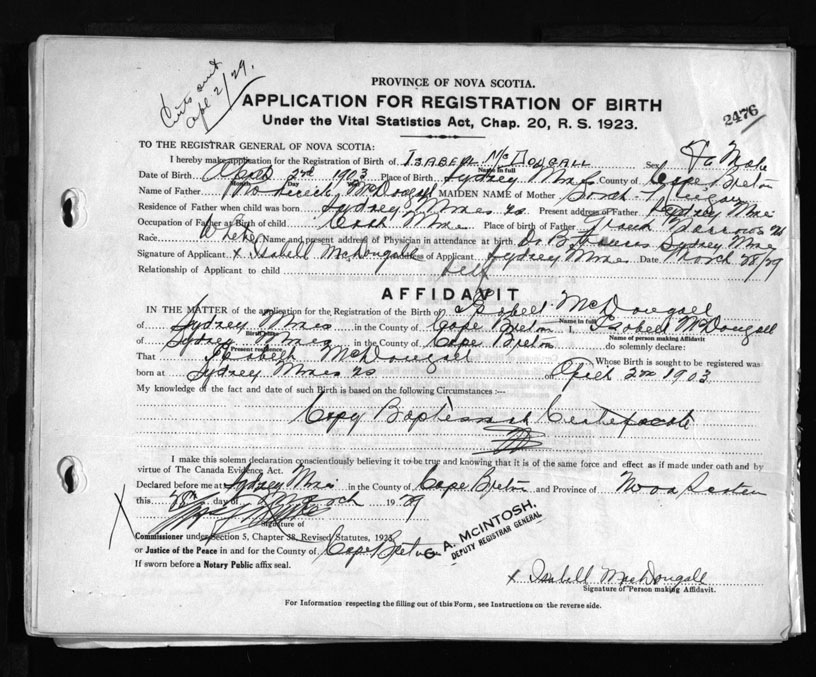 Certs sent
apl 2/29.
PROVINCE OF NOVA SCOTIA.
APPLICATION FOR REGISTRATION OF BIRTH
2476
Under the Vital Statistics Act, Chap. 20, R. S. 1923.
TO THE REGISTRAR GENERAL OF NOVA SCOTIA:
I hereby make application for the Registration of Birth of Isabell McDougall Sex Female
Name in full
Date of Birth April 2nd 1903 Place of Birth Sydney Mines County of Cape Breton
Month Day
Name of Father McDougall MAIDEN NAME of Mother
Residence of Father when child was born Sydney Mines NS Present address of Father Sydney Mines
Occupation of Father at Birth of child Coal Mine Place of birth of Father French
Race White Name and present address of Physician in attendance at birth Dr Sydney Mines
Signature of Applicant x Isabell McDougall of Applicant Sydney Mines Date March 28/29
Relationship of Applicant to child Self
AFFIDAVIT
IN THE MATTER of the application for the Registration of the Birth of Isobell McDougall
Name in full
of Sydney Mines in the County of Cape Breton I, Isobell McDougall
Birth Place Name of person making Affidavit
of Sydney Mines in the County of Cape Breton do solemnly declare:
Present residence
That McDougall Whose Birth is sought to be registered was
born at Sydney Mines NS April 2nd 1903
My knowledge of the fact and date of such Birth is based on the following Circumstances :—
Copy Baptismal Certificate
I make this solemn declaration conscientiously believing it to be true and knowing that it is of the same force and effect as if made under oath and by
virtue of The Canada Evidence Act.
Declared before me at Sydney Mines in the County of Cape Breton and Province of Nova Scotia
this 28th day of March 1929
Signature of
Commissioner under Section 5, Chapter 38, Revised Statutes, 1923
or Justice of the Peace in and for the County of Cape Breton
If sworn before a Notary Public affix seal.
G. A. McINTOSH,
DEPUTY REGISTRAR GENERAL
x Isabell MacDougall
Signature of Person making Affidavit.
For Information respecting the filling out of this Form, see Instructions on the reverse side.